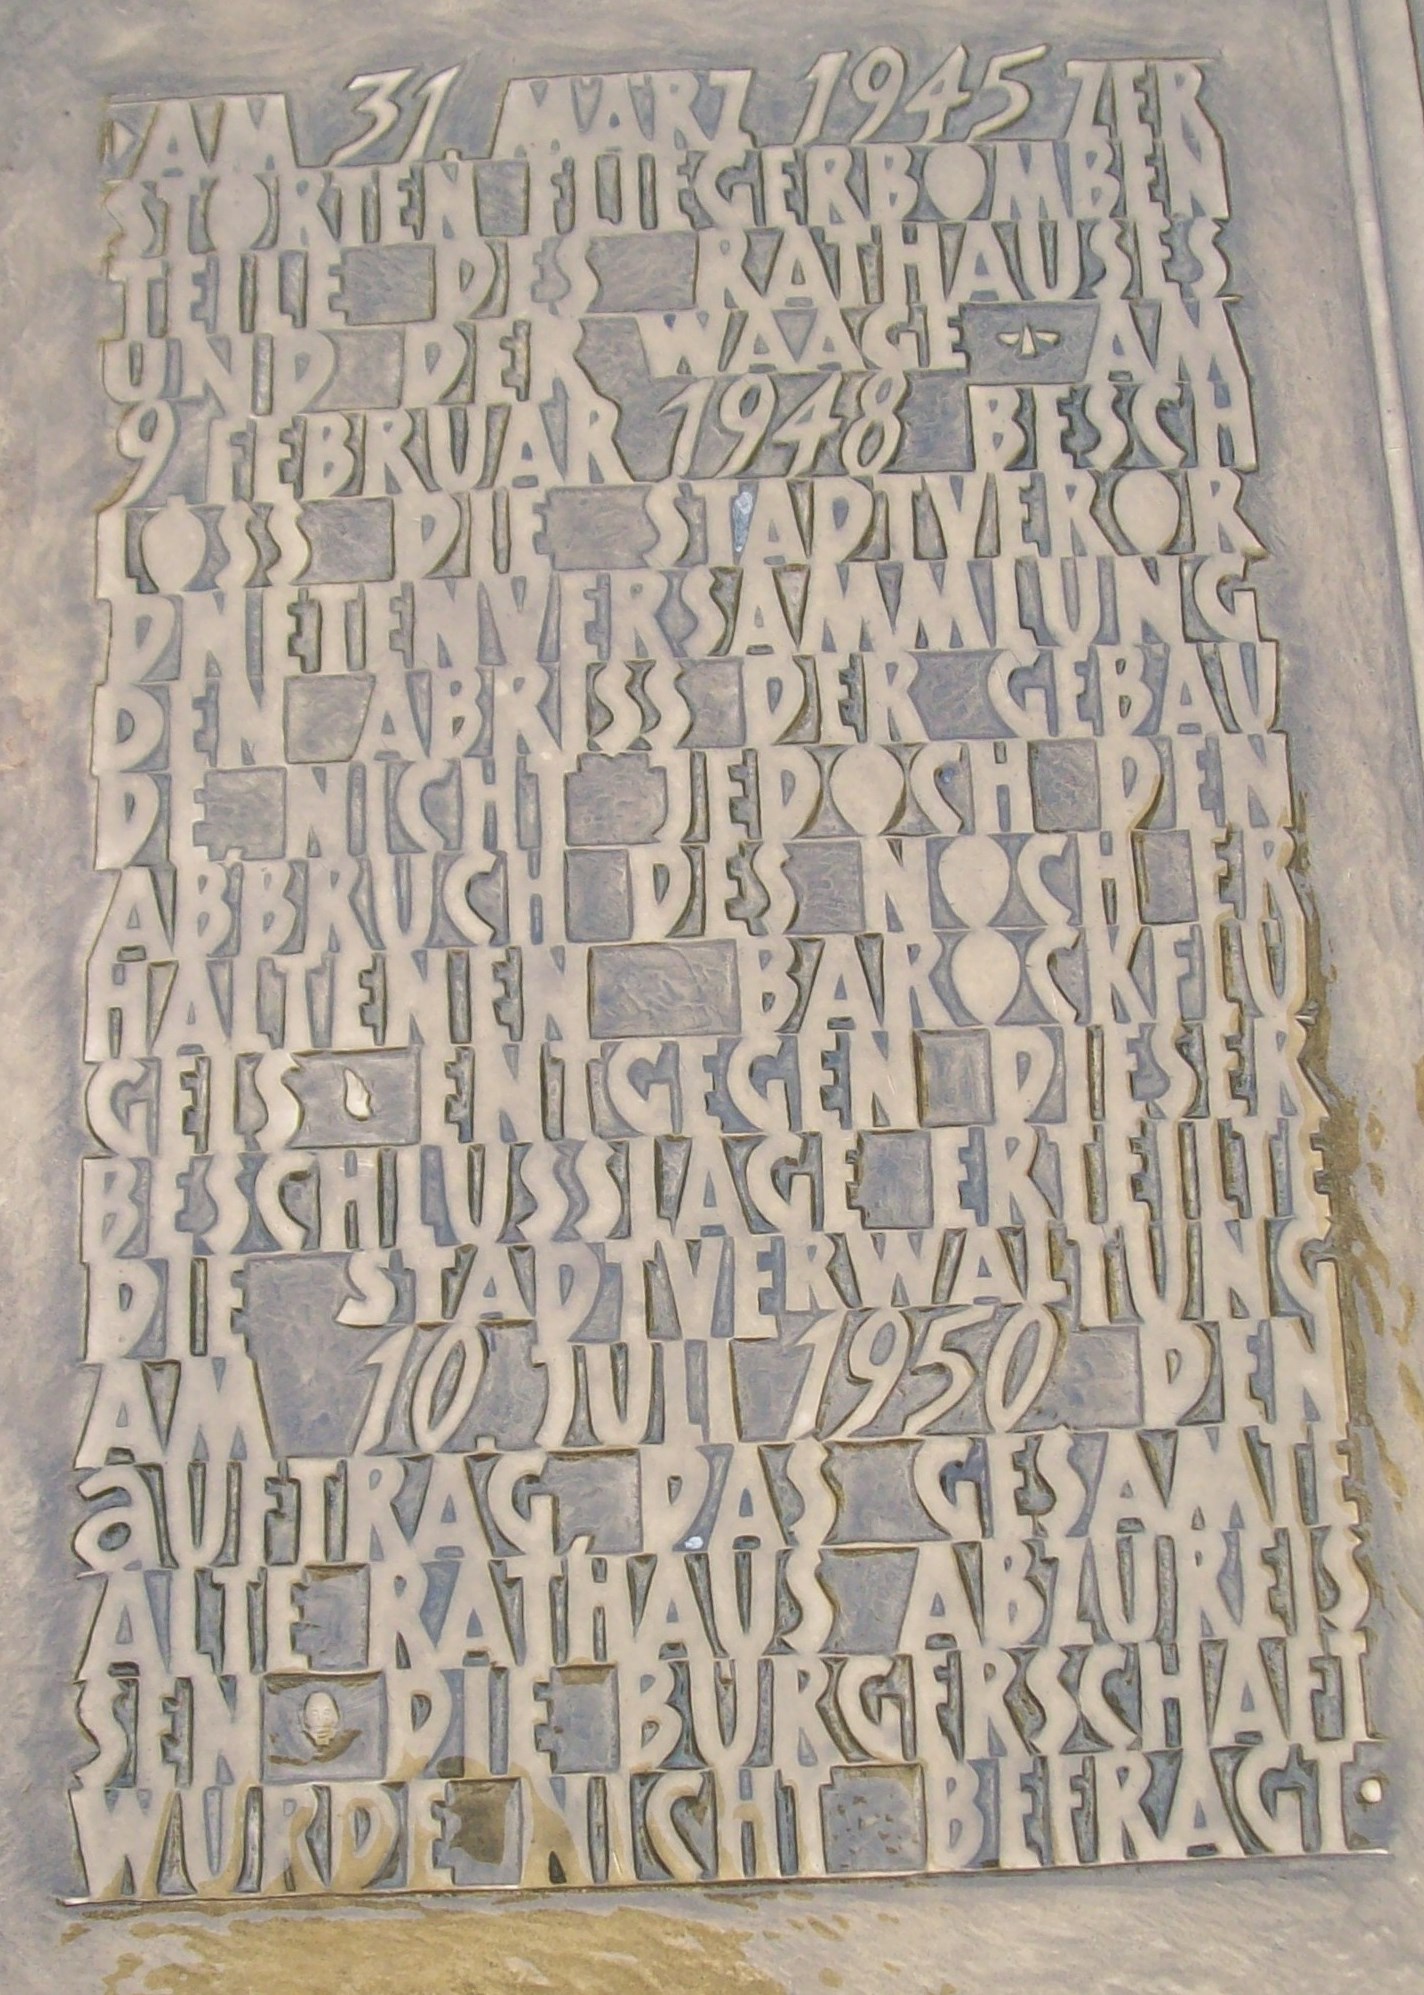 AM 31. MÄRZ 1945 ZER
STÖRTEN FLIEGERBOMBEN
TEILE DES RATHAUSES
UND DER WAAGE AM
9 FEBRUAR 1948 BESCH
LOSS DIE STADTVEROR
DNETENVERSAMMLUNG
DEN ABRISS DER GEBÄU
DE NICHT JEDOCH DEN
ABBRUCH DES NOCH ER
HALTENEN BAROCKFLÜ
GELS ENTGEGEN DIESER
BESCHLUSSLAGE ERTEILTE
DIE STADTVERWALTUNG
AM 10 JULI 1950 DEN
aUFTRAG, DAS GESAMTE
ALTE RATHAUS ABZUREIS
SEN DIE BÜRGERSCHAFT
WURDE NICHT BEFRAGT.